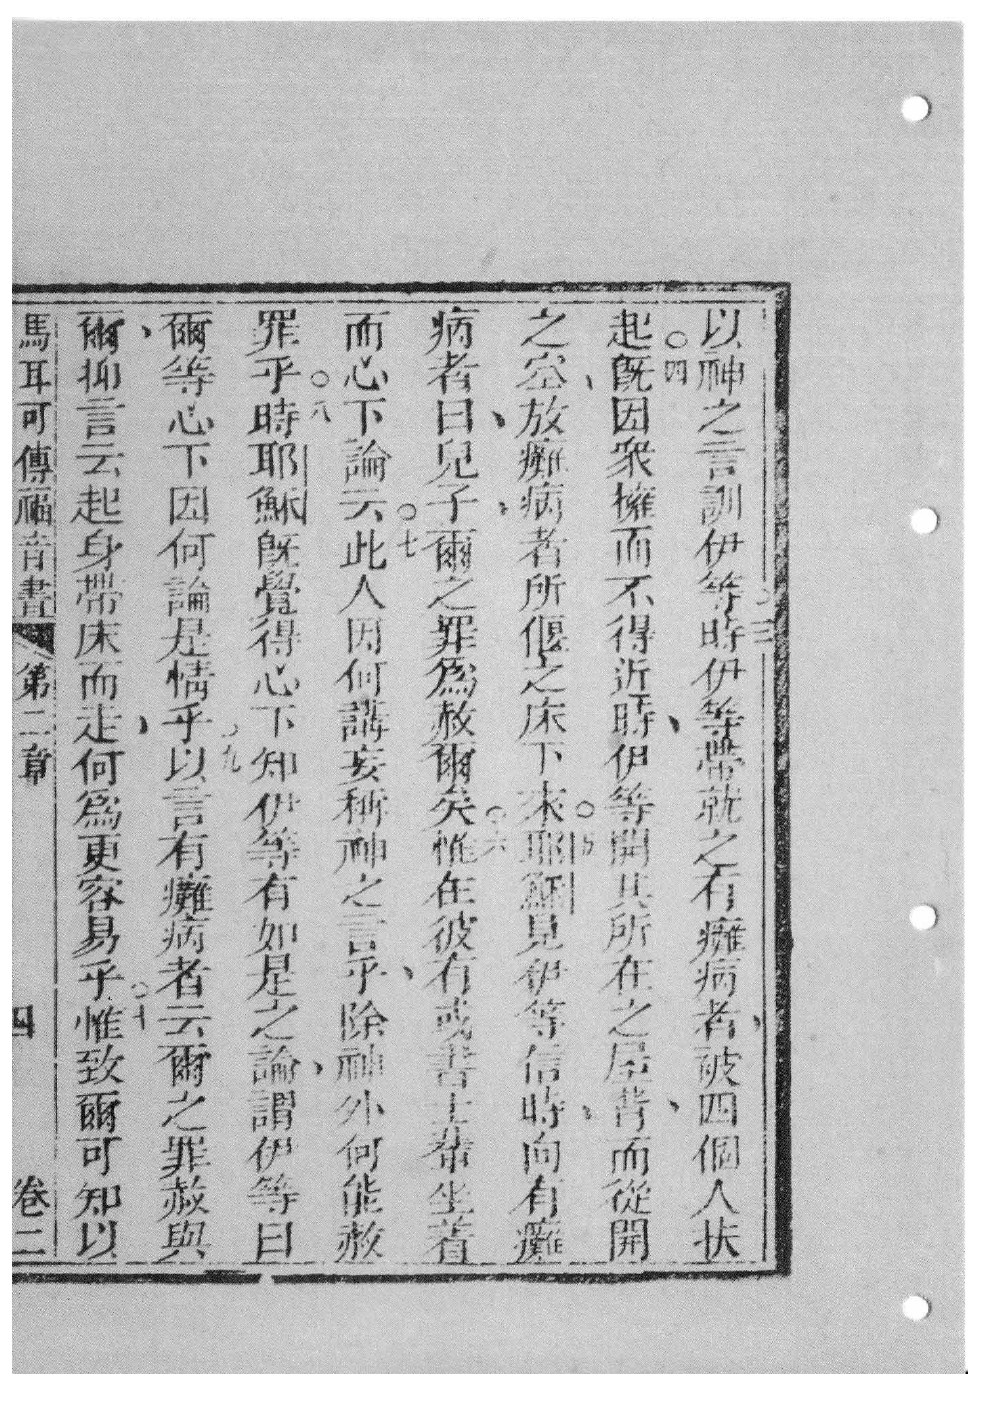 以神之言訓伊等○三時伊等帶就之有癱病者、被四個人扶
起○四旣因衆擁而不得近時、伊等開其所在之屋背、而從開
之空、放癱病者所偃之床下來○五耶穌見伊等信時、向有癱
病者曰、兒子、爾之罪爲赦爾矣○六惟在彼有或書士輩坐着
而心下論云○七此人因何講妄稱神之言乎、除神外何能赦
罪乎○八時耶穌旣覺得心下知伊等有如是之論、謂伊等曰
爾等心下因何論是情乎○九以言有癱病者云爾之罪赦與
爾、抑言云起身帶床而走、何爲更容易乎○十惟致爾可知以
馬耳可傳福音書 第二章 四 卷二